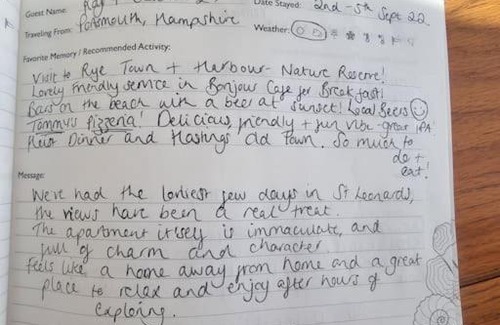 Guest Name:
Date Stayed: 2nd - 5th Sept 22
Traveling From: Portsmouth, Hampshire
Weather:
Favorite Memory / Recommended Activity:
Visit to Rye Town + Harbour - Nature Reserve!
Lovely friendly service in Bonjour Cafe for Breakfast!
on the beach with a beer at sunset! Local Beers
Tommy's Pizzeria! Delicious, friendly + fun vibe - great IPA!
Dinner and Hastings Old Town. So much to
do +
eat!
Message:
We've had the loveliest few days in St Leonards,
the views have been a real treat.
The apartment itself is immaculate, and
full of charm and character
Feels like a home away from home and a great
place to relax and enjoy after hours of
exploring.